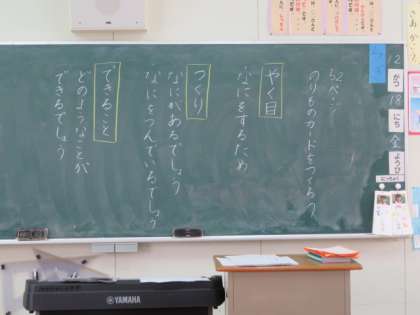 12
がつ
18
にち
金
ようび
52ページ
のりものカードをつくろう
やく目
なにをするため
つくり
なにがあるでしょう
なにをつんでいるでしょう
できること
どのようなことが
できるでしょう
にっちょく
YAMAHA